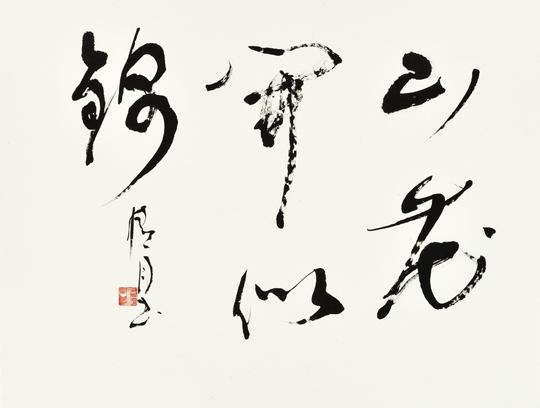 山花
開似
錦